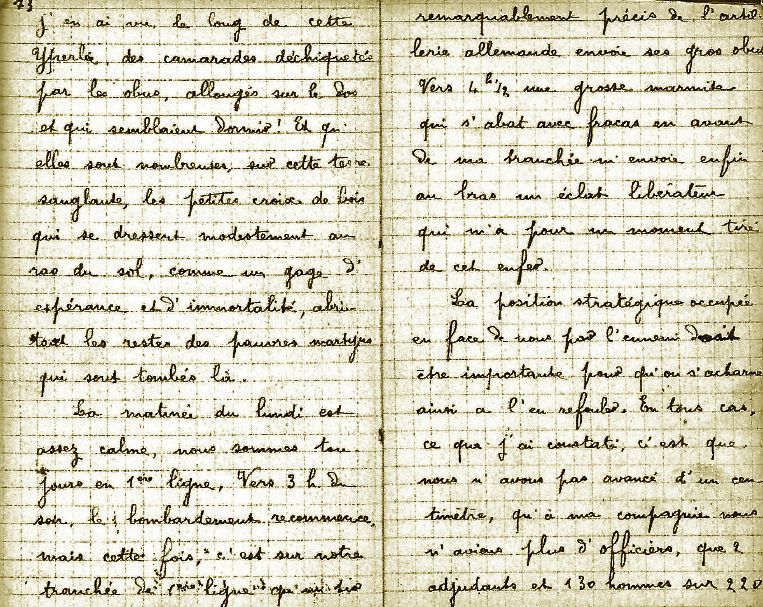 73
j'en ai vu, le long de cette
Yperlée, des camarades déchiquetés
par les obus, allongés sur le dos
et qui semblaient dormir! Et qu'
elles sont nombreuses, sur cette terre
sanglante, les petites croix de bois
qui se dressent modestement au
ras du sol, comme un gage d'
espérance et d'immortalité, abri-
tant les restes des pauvres martyrs
qui sont tombés là.
La matinée du lundi est
assez calme, nous sommes tou-
jours en 1ère ligne, Vers 3 h. du
soir, le bombardement recommence,
mais cette fois, c'est sur notre
tranchée de 1ère ligne qu'un tir
remarquablement précis de l'artil-
lerie allemande envoie ses gros obus
Vers 4 h 1/2 une grosse marmite
qui s'abat avec fracas en avant
de ma tranchée m'envoie enfin
au bras un éclat libérateur
qui m'a pour un moment tiré
de cet enfer.
La position stratégique occupée
en face de nous par l'ennemi devait
être importante pour qu'on s'acharne
ainsi a l'en refouler. En tous cas,
ce que j'ai constaté, c'est que
nous n'avons pas avancé d'un cen-
timètre, qu'à ma compagnie nous
n'avions plus d'officiers, que 2
adjudants et 130 hommes sur 220